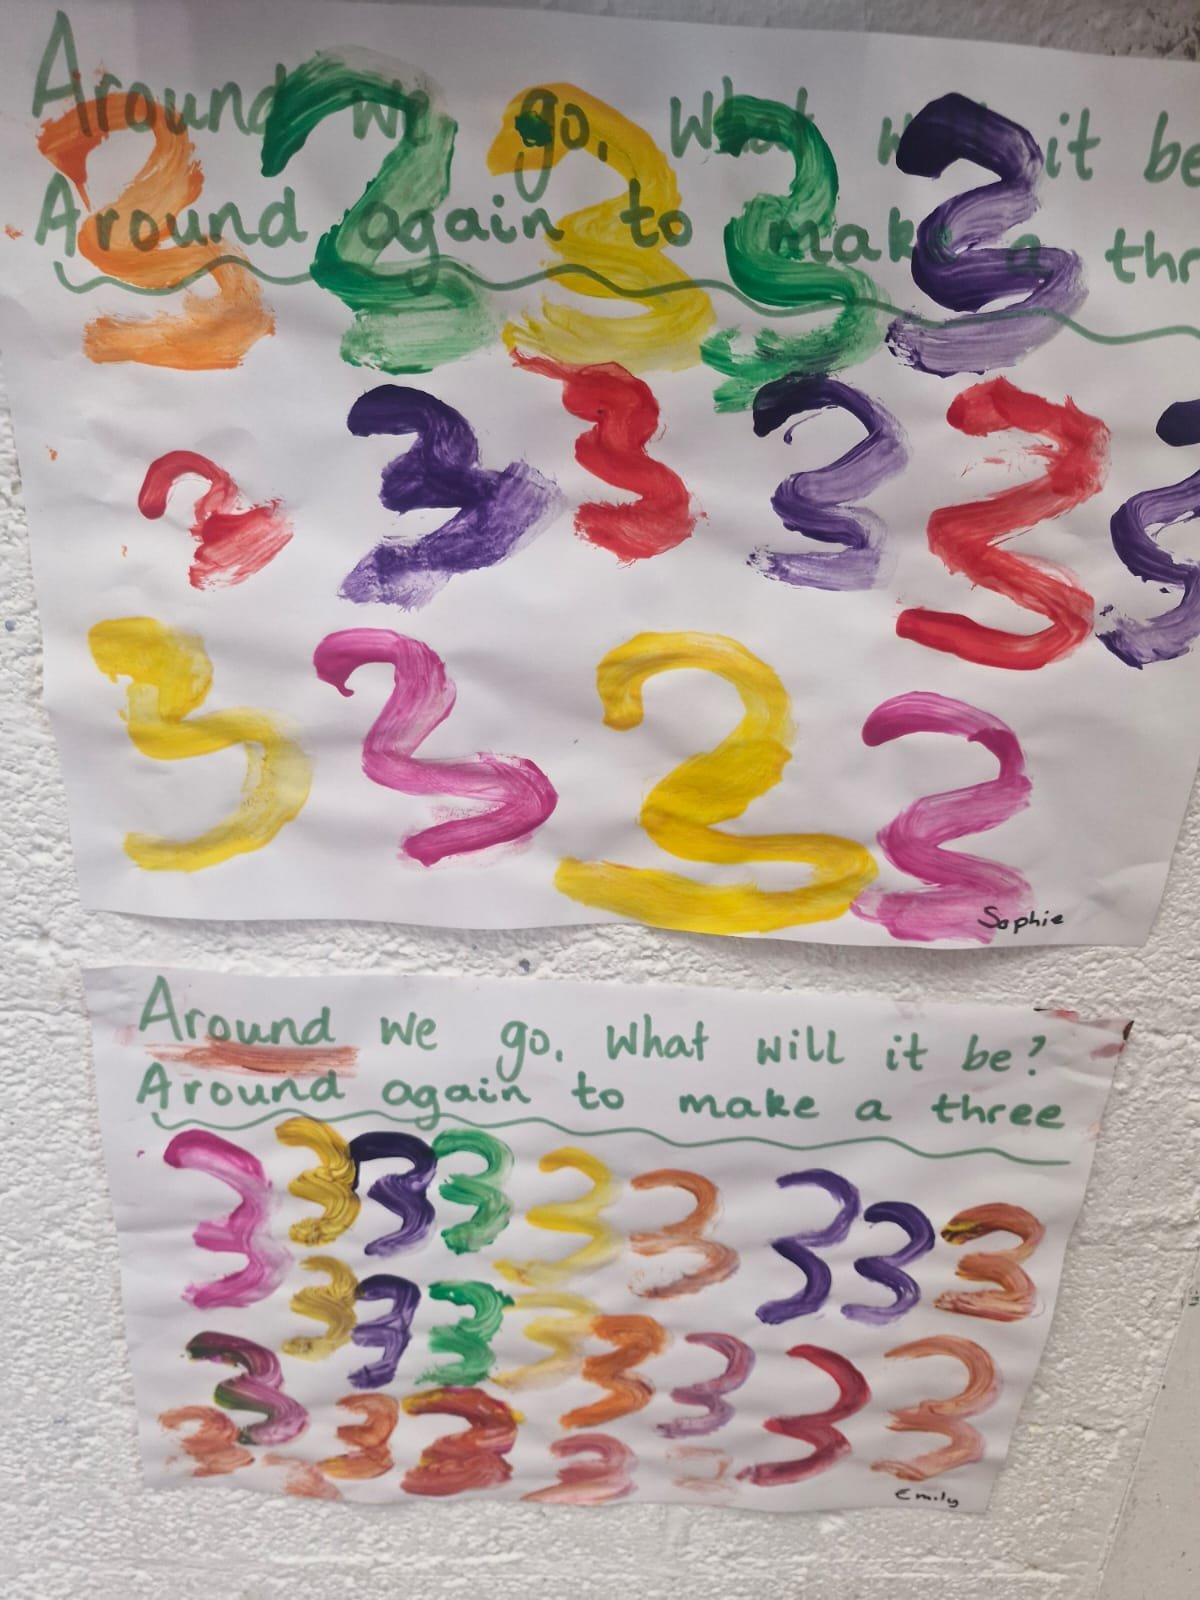 Around we go. What it be
Around again to make a thr
3 3 3 3 3
3 3 3 3 3 3
3 3 3 3
Sophie
Around we go. What will it be?
Around again to make a three
3 3 3 3 3 3 3 3 3
3 3 3 3 3 3 3 3
3 3 3 3 3
Emily